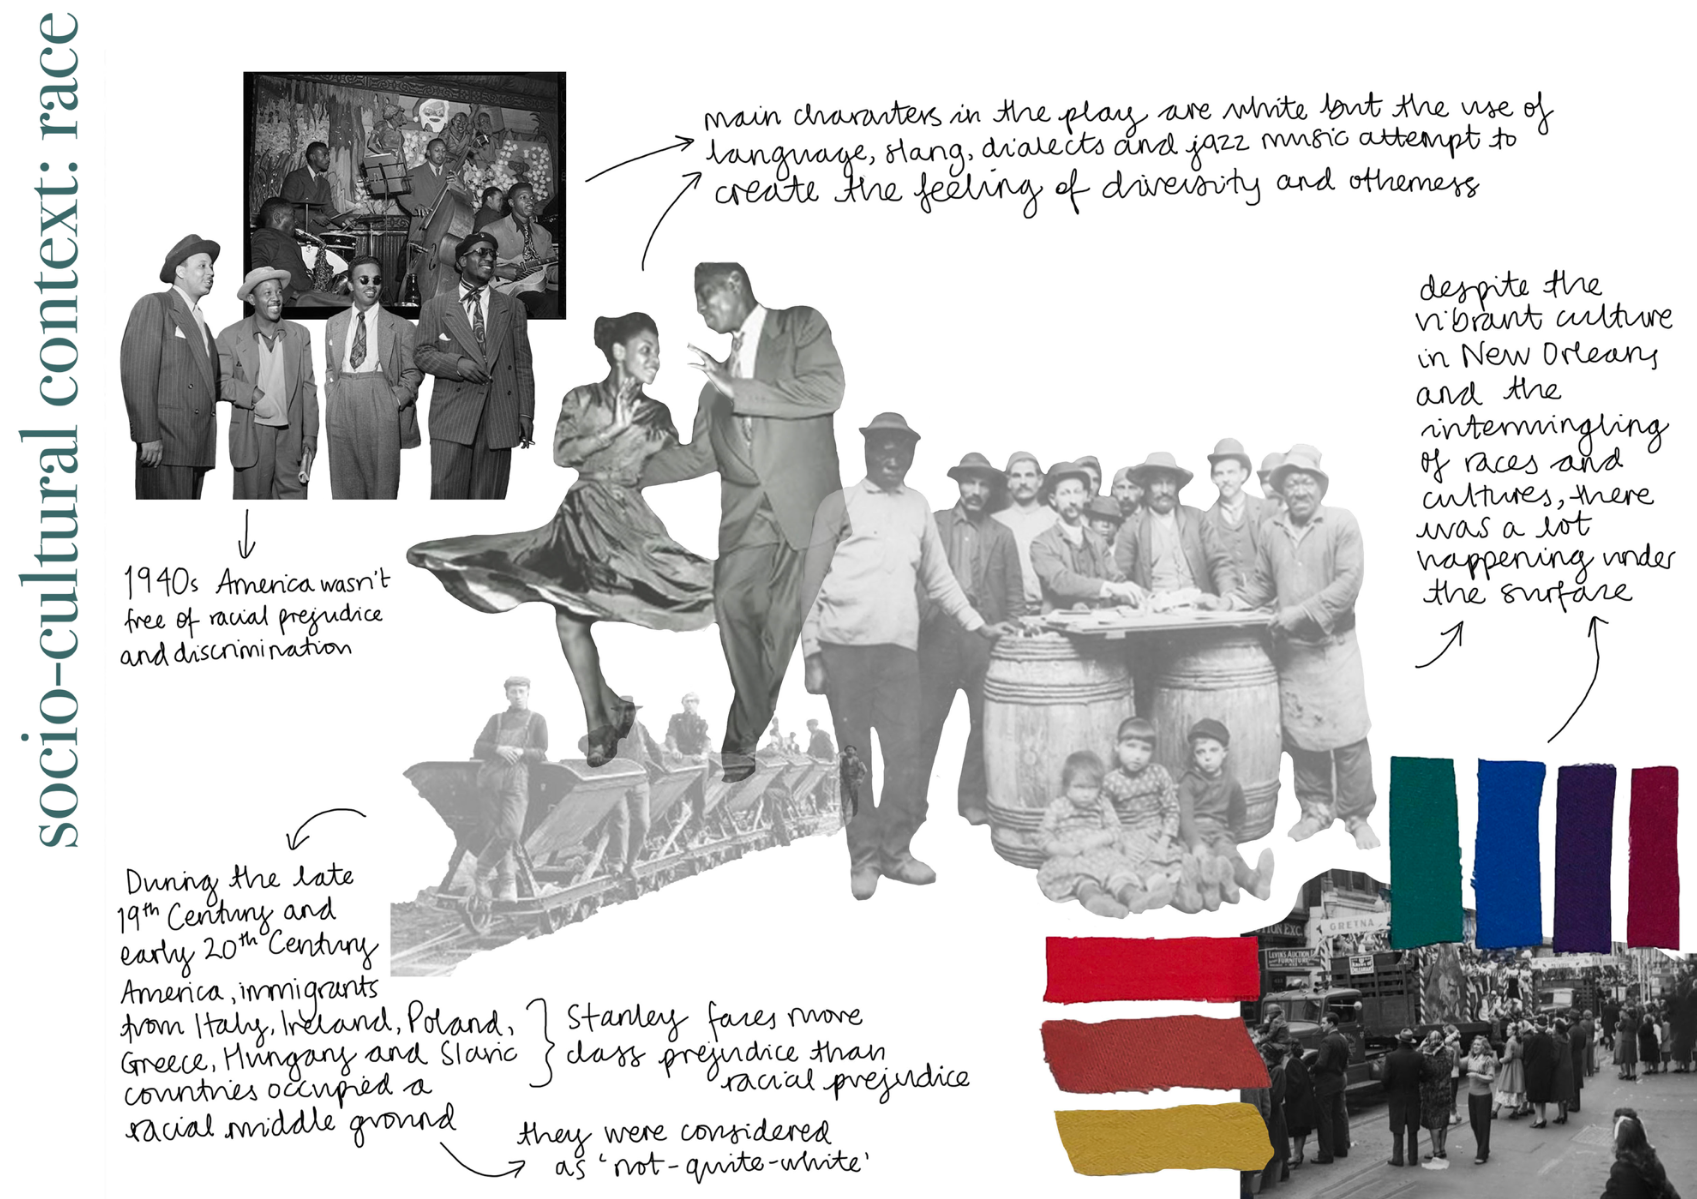 socio-cultural context: race
main characters in the play are white but the use of
language, slang, dialects and jazz music attempt to
create the feeling of diversity and otherness
despite the
vibrant culture
in New Orleans
and the
intermingling
of races and
cultures, there
was a lot
happening under
the surface
1940s America wasn't
free of racial prejudice
and discrimination
During the late
19th Century and
early 20th Century
America, immigrants
from Italy, Ireland, Poland,
Greece, Hungary and Slavic
countries occupied a
racial middle ground
Stanley faces more
class prejudice than
racial prejudice
they were considered
as 'not-quite-white'
GRETNA